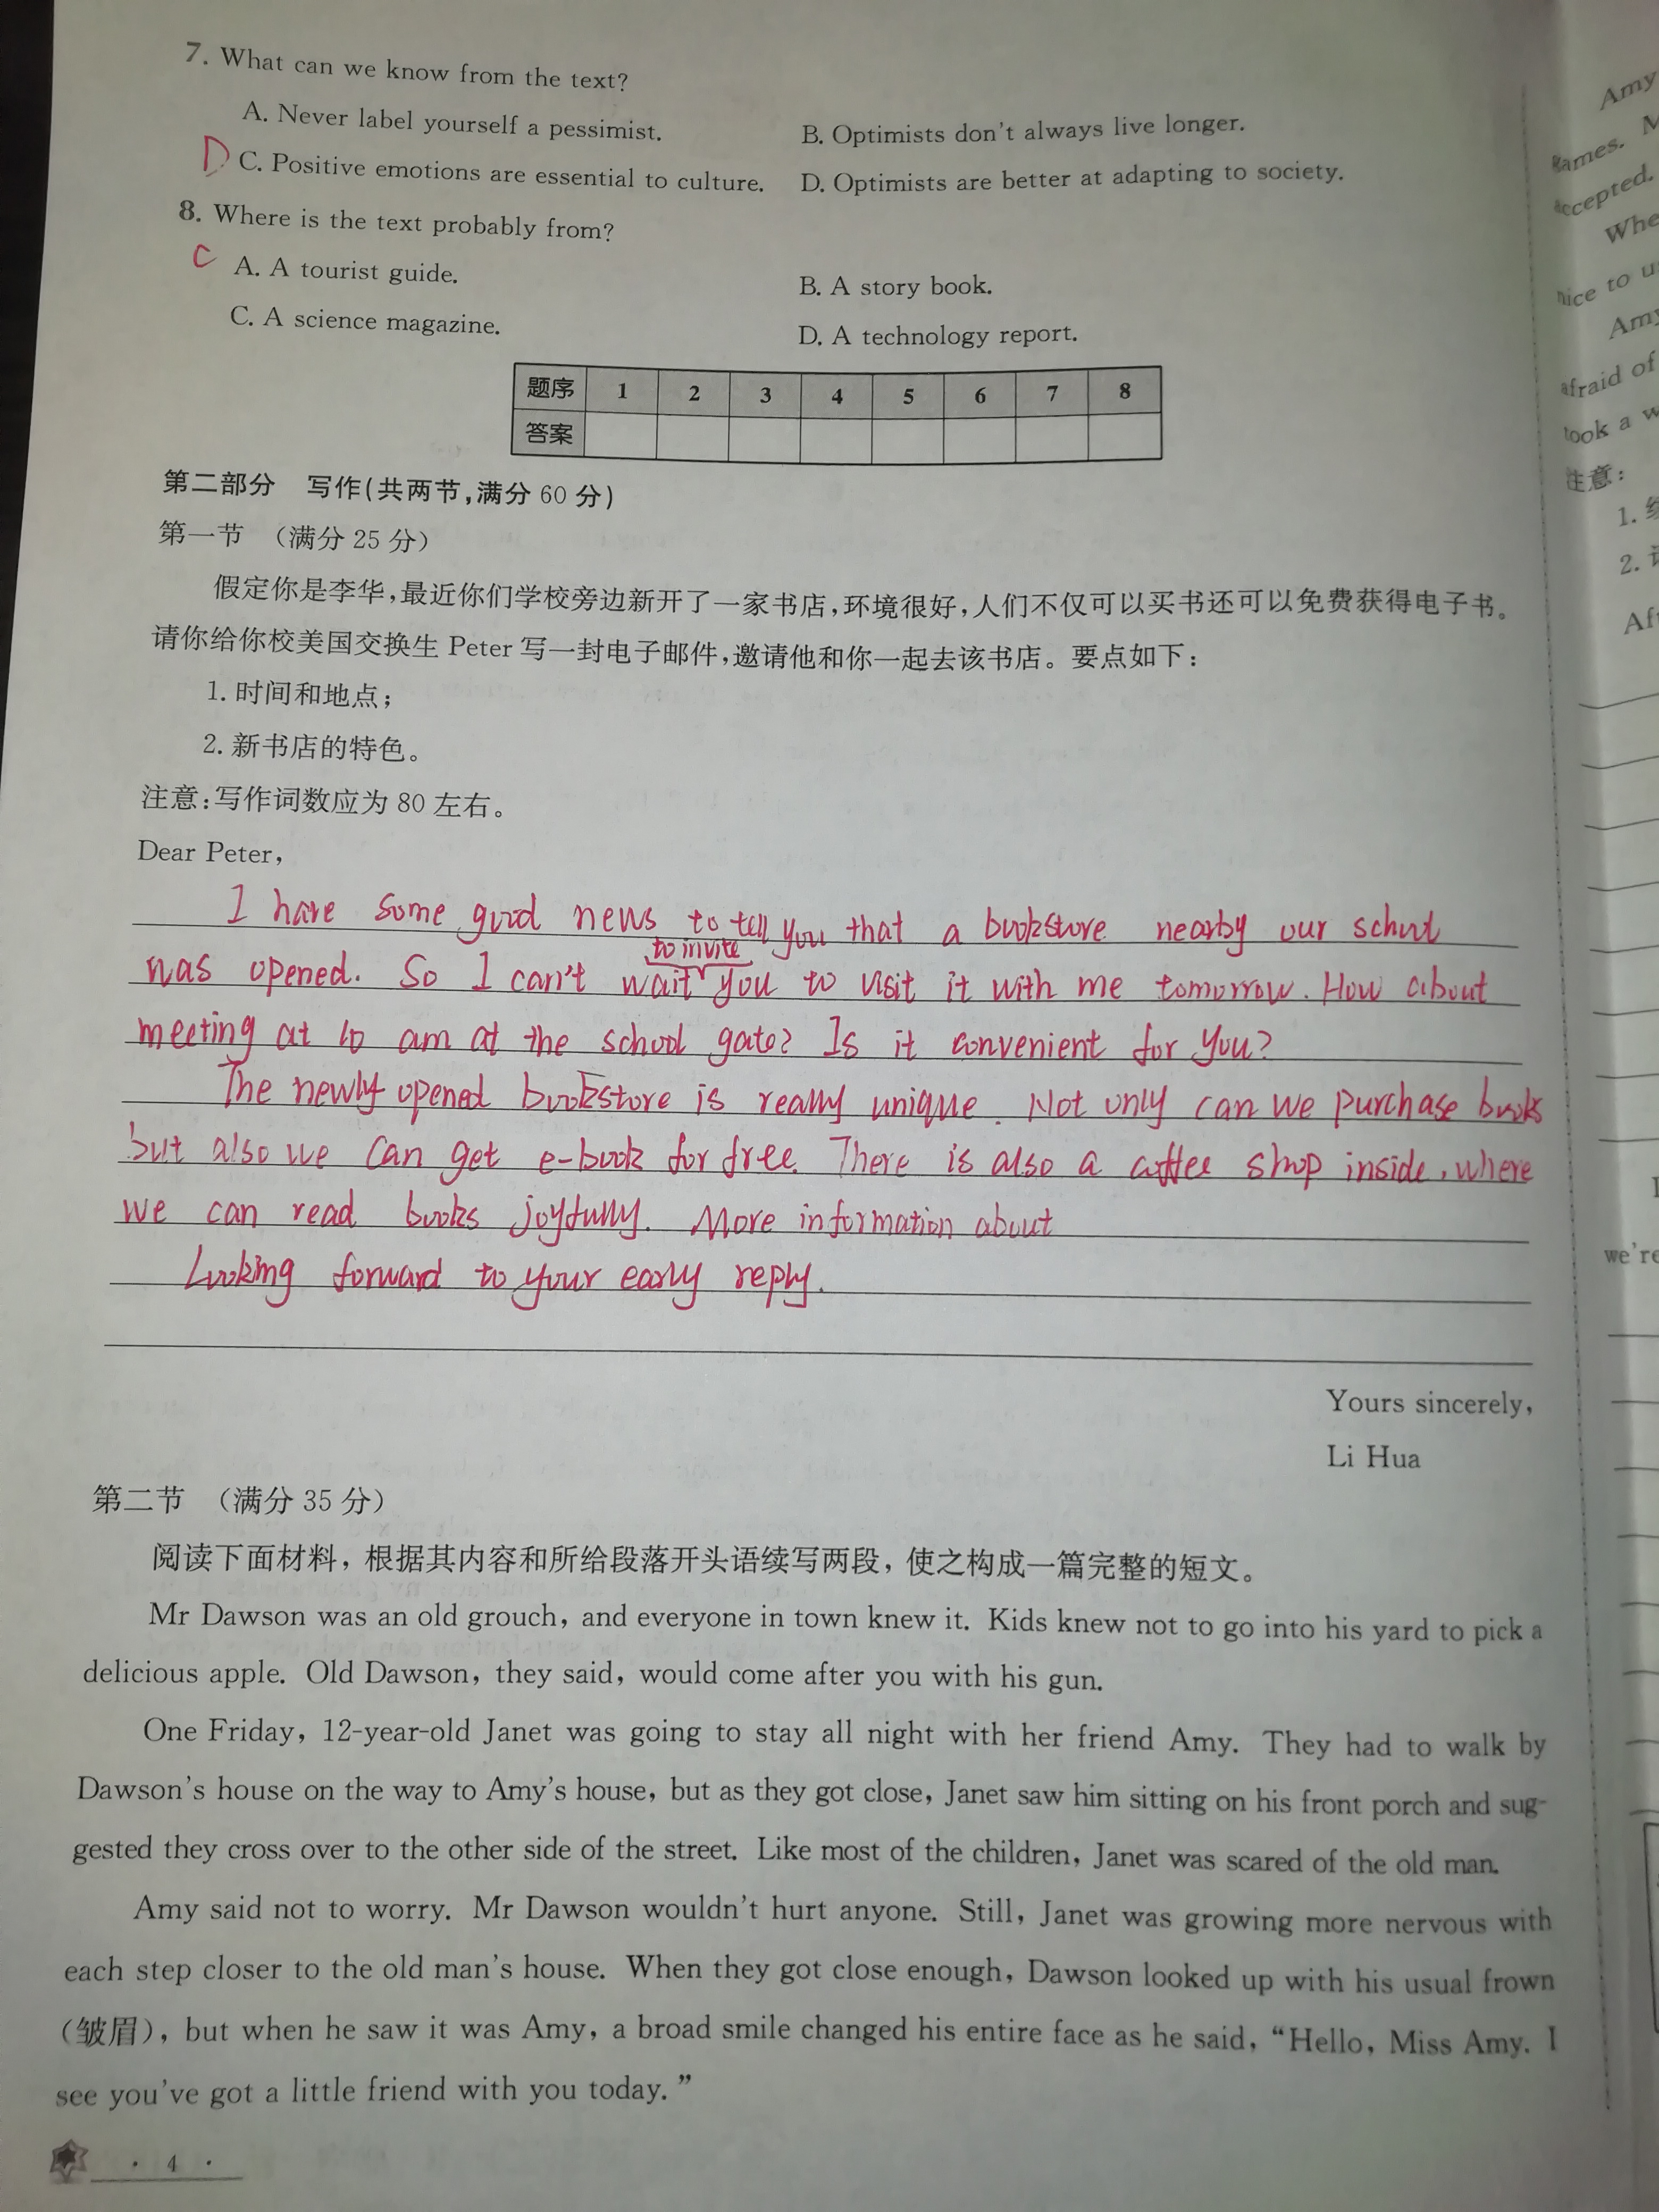 7. What can we know from the text?
A. Never label yourself a pessimist. B. Optimists don't always live longer.
D C. Positive emotions are essential to culture. D. Optimists are better at adapting to society.
8. Where is the text probably from?
C A. A tourist guide. B. A story book.
C. A science magazine. D. A technology report.
题序 1 2 3 4 5 6 7 8
答案
第二部分 写作(共两节,满分60分)
第一节 (满分25分)
假定你是李华,最近你们学校旁边新开了一家书店,环境很好,人们不仅可以买书还可以免费获得电子书。
请你给你校美国交换生 Peter 写一封电子邮件,邀请他和你一起去该书店。要点如下:
1. 时间和地点;
2. 新书店的特色。
注意:写作词数应为80左右。
Dear Peter,
I have some good news to tell you that a bookstore nearby our school
to invite
was opened. So I can't wait you to visit it with me tomorrow. How about
meeting at 10 am at the school gate? Is it convenient for you?
The newly opened bookstore is really unique. Not only can we purchase books
but also we can get e-book for free. There is also a coffee shop inside, where
we can read books joyfully. More information about
Looking forward to your early reply.
Yours sincerely,
Li Hua
第二节 (满分35分)
阅读下面材料,根据其内容和所给段落开头语续写两段,使之构成一篇完整的短文。
Mr Dawson was an old grouch, and everyone in town knew it. Kids knew not to go into his yard to pick a
delicious apple. Old Dawson, they said, would come after you with his gun.
One Friday, 12-year-old Janet was going to stay all night with her friend Amy. They had to walk by
Dawson's house on the way to Amy's house, but as they got close, Janet saw him sitting on his front porch and sug-
gested they cross over to the other side of the street. Like most of the children, Janet was scared of the old man.
Amy said not to worry. Mr Dawson wouldn't hurt anyone. Still, Janet was growing more nervous with
each step closer to the old man's house. When they got close enough, Dawson looked up with his usual frown
(皱眉), but when he saw it was Amy, a broad smile changed his entire face as he said, "Hello, Miss Amy. I
see you've got a little friend with you today."
· 4 ·
Amy
games.
accepted.
nice to
Amy
afraid of
took a
注意:
1.
2.
we're